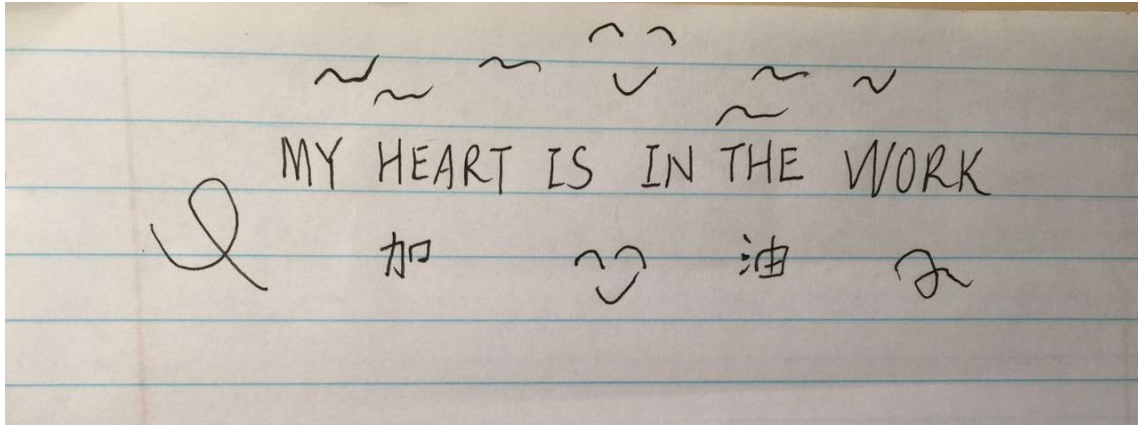 MY HEART IS IN THE WORK
加 油